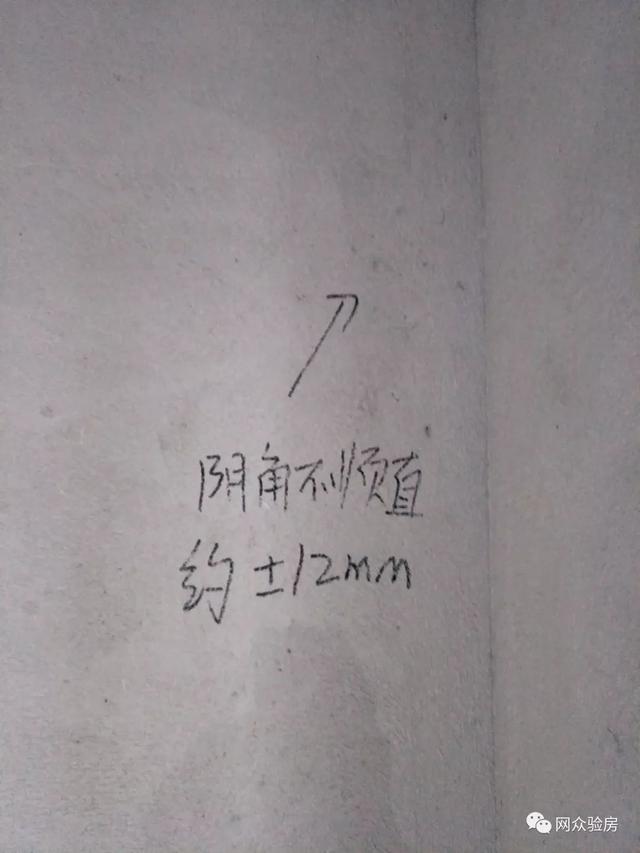 阴角不顺直
约±12mm
网众验房